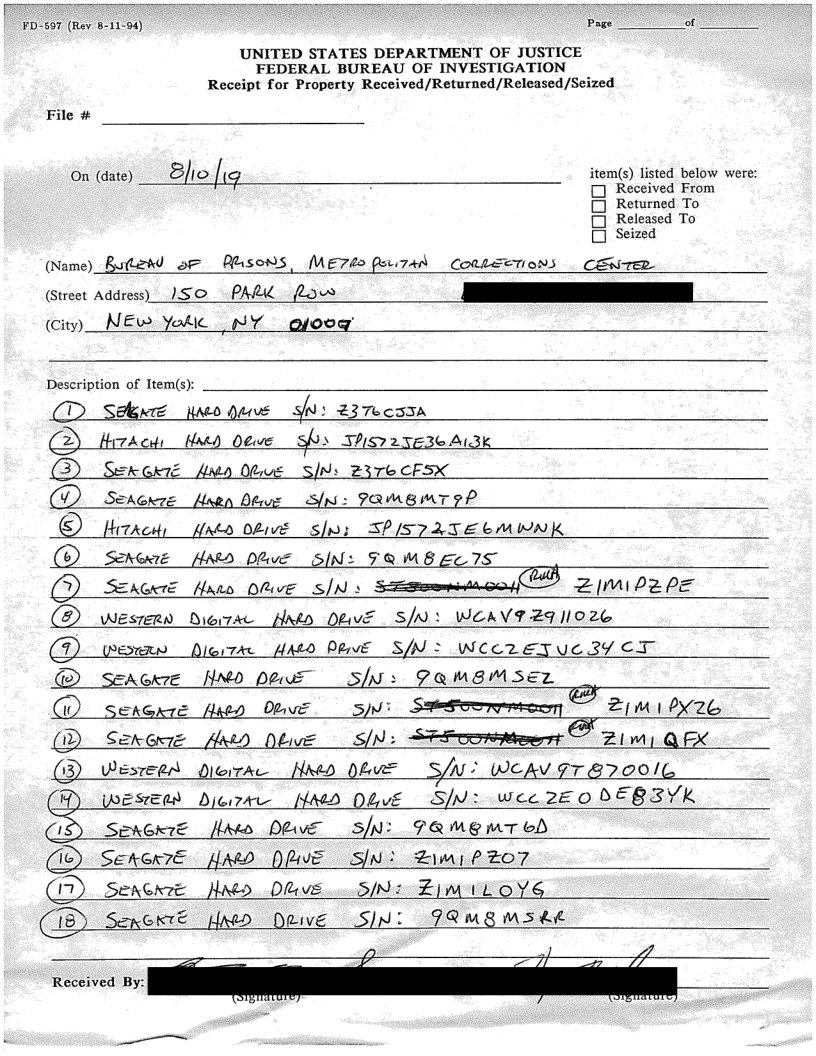 FD-597 (Rev 8-11-94) Page ________ of ________
UNITED STATES DEPARTMENT OF JUSTICE
FEDERAL BUREAU OF INVESTIGATION
Receipt for Property Received/Returned/Released/Seized
File #
On (date) 8/10/19
item(s) listed below were:
☐ Received From
☐ Returned To
☐ Released To
☐ Seized
(Name) BUREAU OF PRISONS, METROPOLITAN CORRECTIONS CENTER
(Street Address) 150 PARK ROW
(City) NEW YORK, NY 01009
Description of Item(s):
① SEAGATE HARD DRIVE S/N: Z3T6CJJA
② HITACHI HARD DRIVE S/N: JP1572JE36A13K
③ SEAGATE HARD DRIVE S/N: Z3T6CF5X
④ SEAGATE HARD DRIVE S/N: 9QM8MT9P
⑤ HITACHI HARD DRIVE S/N: JP1572JE6MWNK
⑥ SEAGATE HARD DRIVE S/N: 9QM8EC75
⑦ SEAGATE HARD DRIVE S/N: Z1M1PZPE
⑧ WESTERN DIGITAL HARD DRIVE S/N: WCAV9Z911026
⑨ WESTERN DIGITAL HARD DRIVE S/N: WCC2EJVC34CJ
⑩ SEAGATE HARD DRIVE S/N: 9QM8MSEZ
⑪ SEAGATE HARD DRIVE S/N: Z1M1PXZ6
⑫ SEAGATE HARD DRIVE S/N: Z1M1QFX
⑬ WESTERN DIGITAL HARD DRIVE S/N: WCAV9T870016
⑭ WESTERN DIGITAL HARD DRIVE S/N: WCC2E0DE83YK
⑮ SEAGATE HARD DRIVE S/N: 9QM8MT6D
⑯ SEAGATE HARD DRIVE S/N: Z1M1PZ07
⑰ SEAGATE HARD DRIVE S/N: Z1M1L0YG
⑱ SEAGATE HARD DRIVE S/N: 9QM8MSRR
Received By:
(Signature) (Signature)